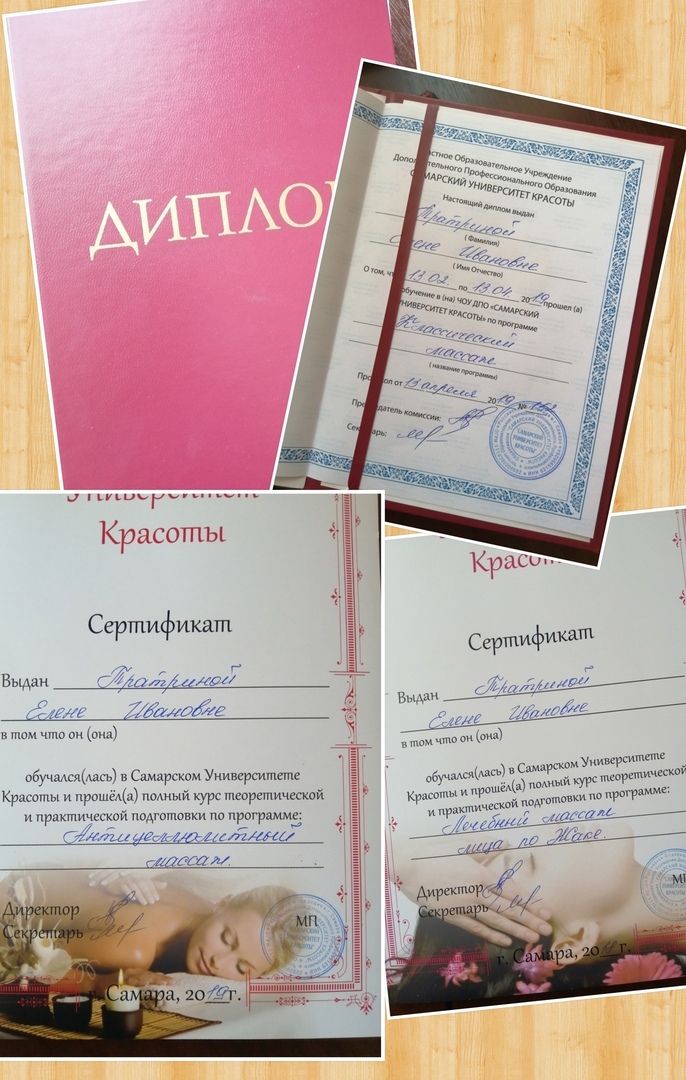 ДИПЛО
астное Образовательное Учреждение
Допо тельного Профессионального Образования
САМАРСКИЙ УНИВЕРСИТЕТ КРАСОТЫ
Настоящий диплом выдан
Тратриной
(Фамилия)
Елене Ивановне
(Имя Отчество)
О том, чт 13.02. по 13.04 2019 прошел (а)
обучение в (на) ЧОУ ДПО «САМАРСКИЙ
УНИВЕРСИТЕТ КРАСОТЫ» по программе
Классический
массаж
(название программы)
Пр ол от 13 апреля 2019 №
Пре едатель комиссии:
Секретарь:
САМАРСКИЙ
УНИВЕРСИТЕТ
КРАСОТЫ
Университет
Красоты
Сертификат
Выдан Тратриной
Елене Ивановне
в том что он (она)
обучался(лась) в Самарском Университете
Красоты и прошёл(а) полный курс теоретической
и практической подготовки по программе:
Антицеллюлитный
массаж.
Директор
Секретарь
МП
г. Самара, 2019 г.
Красо
Сертификат
Выдан Тратриной
Елене Ивановне
в том что он (она)
обучался(лась) в Самарском Университете
Красоты и прошёл(а) полный курс теоретической
и практической подготовки по программе:
Лечебный массаж
лица по Жаке.
Директор
Секретарь
МП
г. Самара, 20 г.